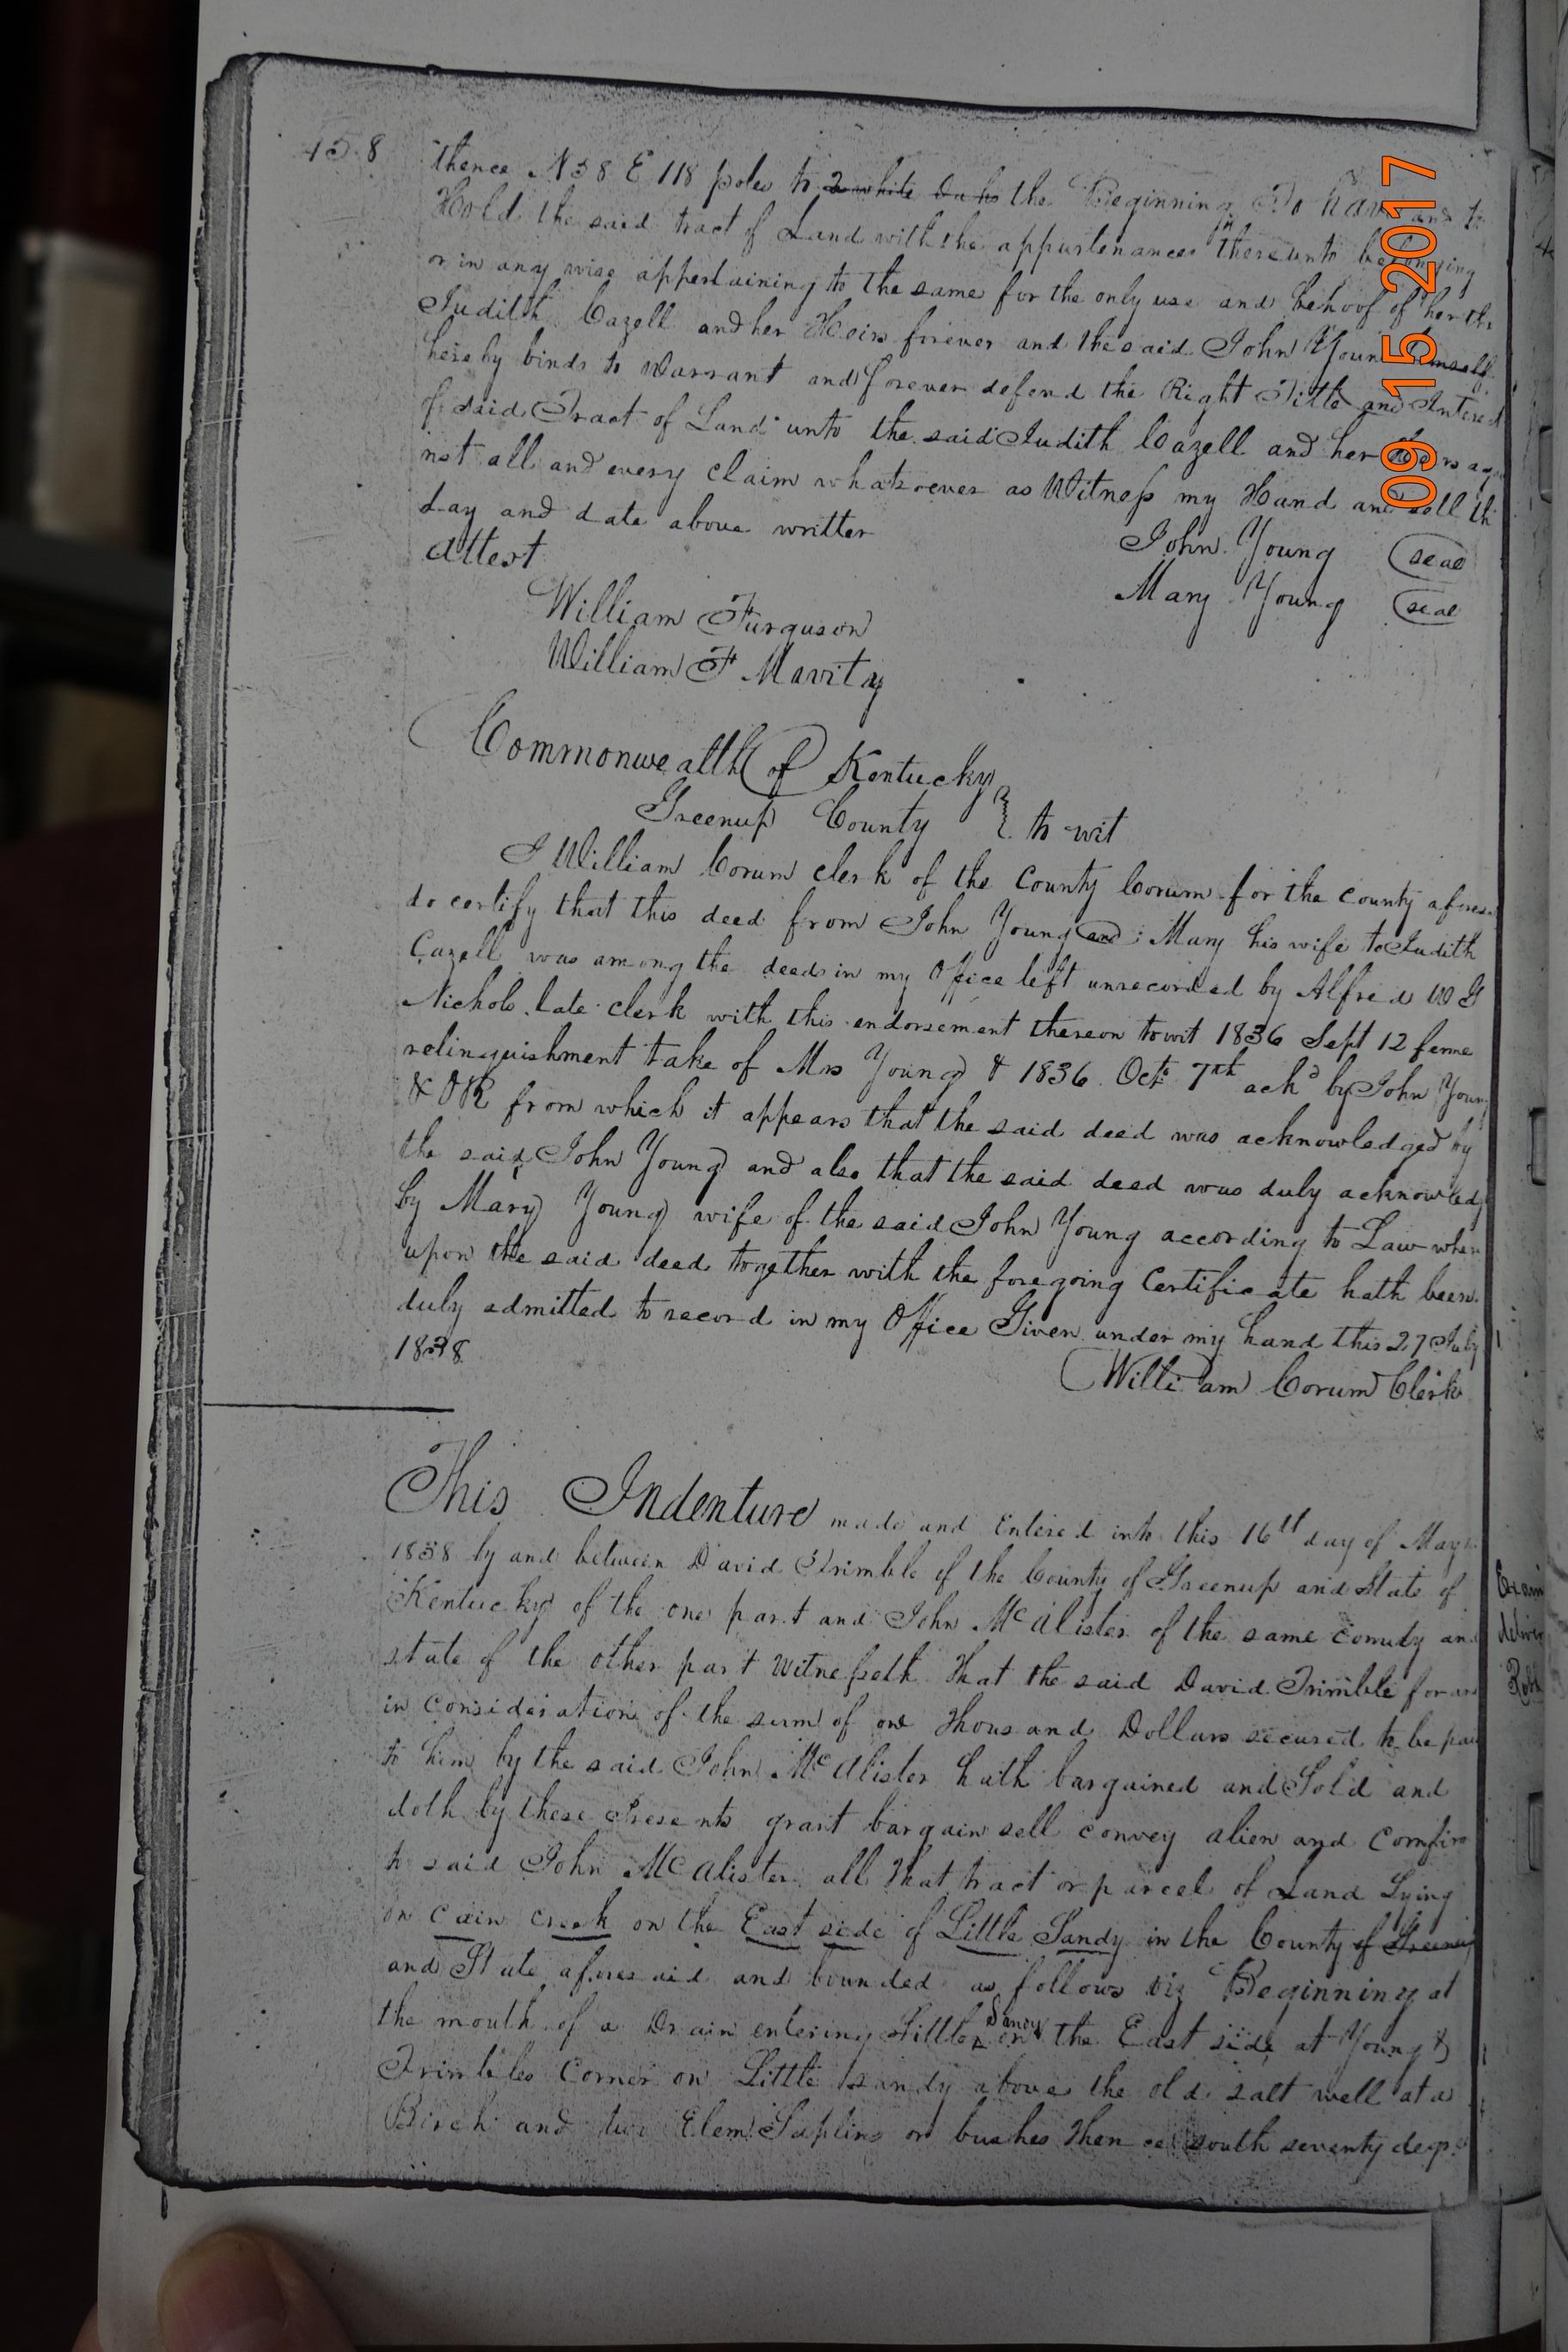 458
thence N58 E 118 poles to 2 white Oaks the Beginning To have and to
Hold the said tract of Land with the appurtenances thereunto belonging
or in any wise appertaining to the same for the only use and behoof of her the
Judith Cazell and her Heirs forever and the said John Young himself
hereby binds to Warrant and forever defend the Right Title and Interest
of said Tract of Land unto the said Judith Cazell and her Heirs aga
inst all and every claim whatsoever as Witness my Hand and sell th
day and date above written
Attest
John Young (seal
Mary Young (seal
William Furguson
William F Mavity
Commonwealth of Kentucky
Greenup County } to wit
I William Corum clerk of the County Corum for the county afores
do certify that this deed from John Young and Mary his wife to Judith
Cazell was among the deeds in my Office left unrecorded by Alfred W G
Nichols late clerk with this endorsement thereon towit 1836 Sept 12 feme
relinquishment take of Mrs Young & 1836 Octo 7th ackd by John Young
& OR from which it appears that the said deed was acknowledged by
the said John Young and also that the said deed was duly acknowledg
by Mary Young wife of the said John Young according to Law wher
upon the said deed together with the foregoing Certificate hath been
duly admitted to record in my Office Given under my hand this 27 July
1838
William Corum Clerk
This Indenture made and Entered into this 16th day of May
1838 by and between David Trimble of the County of Greenup and State of
Kentucky of the one part and John McAlister of the same Comuty an
state of the other part Witnesseth That the said David Trimble for and
in consideration of the sum of one Thousand Dollars secured to be pai
to him by the said John McAlister hath bargained and Sold and
doth by these Presents grant bargain sell convey alien and Comfirm
to said John McAlister all that tract or parcel of Land Lying
on Cain Creek on the East side of Little Sandy in the County of Greenup
and State aforesaid and bounded as follows viz Beginning at
the mouth of a Drain entering Little Sandy on the East side at Young &
Trimbles Corner on Little Sandy above the old salt well at a
Birch and two Elem Saplins or bushes thence south seventy degr
Exam
deliver
09 15 2017